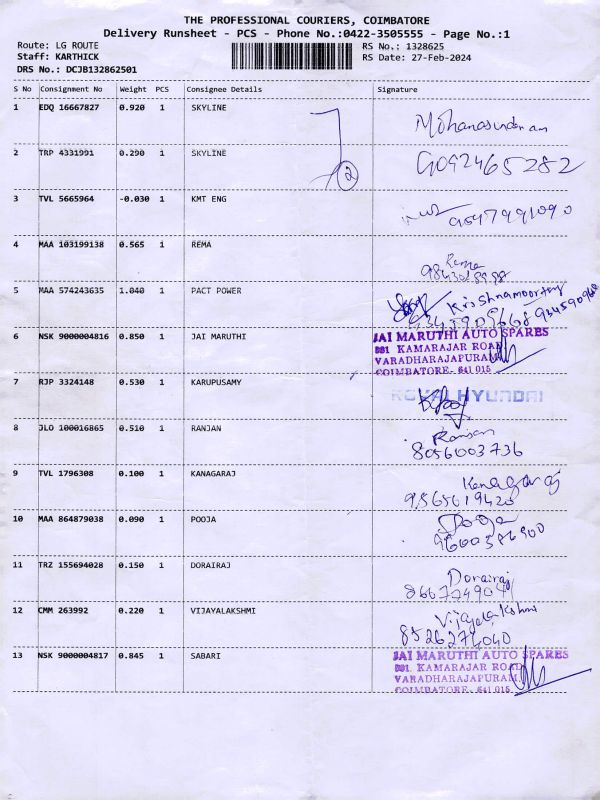 THE PROFESSIONAL COURIERS, COIMBATORE
Delivery Runsheet - PCS - Phone No.:0422-3505555 - Page No.:1
Route: LG ROUTE RS No.: 1328625
Staff: KARTHICK RS Date: 27-Feb-2024
DRS No.: DCJB132862501
S No Consignment No Weight PCS Consignee Details Signature
1 EDQ 16667827 0.920 1 SKYLINE Mohanasundaram
2 TRP 4331991 0.290 1 SKYLINE 2 9092465282
3 TVL 5665964 -0.030 1 KMT ENG
4 MAA 103199138 0.565 1 REMA Rema
5 MAA 574243635 1.040 1 PACT POWER Krishnamoorthy
6 NSK 9000004816 0.850 1 JAI MARUTHI JAI MARUTHI AUTO SPARES
881 KAMARAJAR ROAD
VARADHARAJAPURAM
COIMBATORE - 641 015
7 RJP 3324148 0.530 1 KARUPUSAMY ROYAL HYUNDAI
8 JLO 100016865 0.510 1 RANJAN Ranjan
8056003736
9 TVL 1796308 0.100 1 KANAGARAJ Kanagaraj
9865619420
10 MAA 864879038 0.090 1 POOJA Pooja
9600386900
11 TRZ 155694028 0.150 1 DORAIRAJ Dorairaj
12 CMM 263992 0.220 1 VIJAYALAKSHMI Vijayalakshmi
8526274040
13 NSK 9000004817 0.845 1 SABARI JAI MARUTHI AUTO SPARES
881, KAMARAJAR ROAD
VARADHARAJAPURAM,
COIMBATORE - 641 015